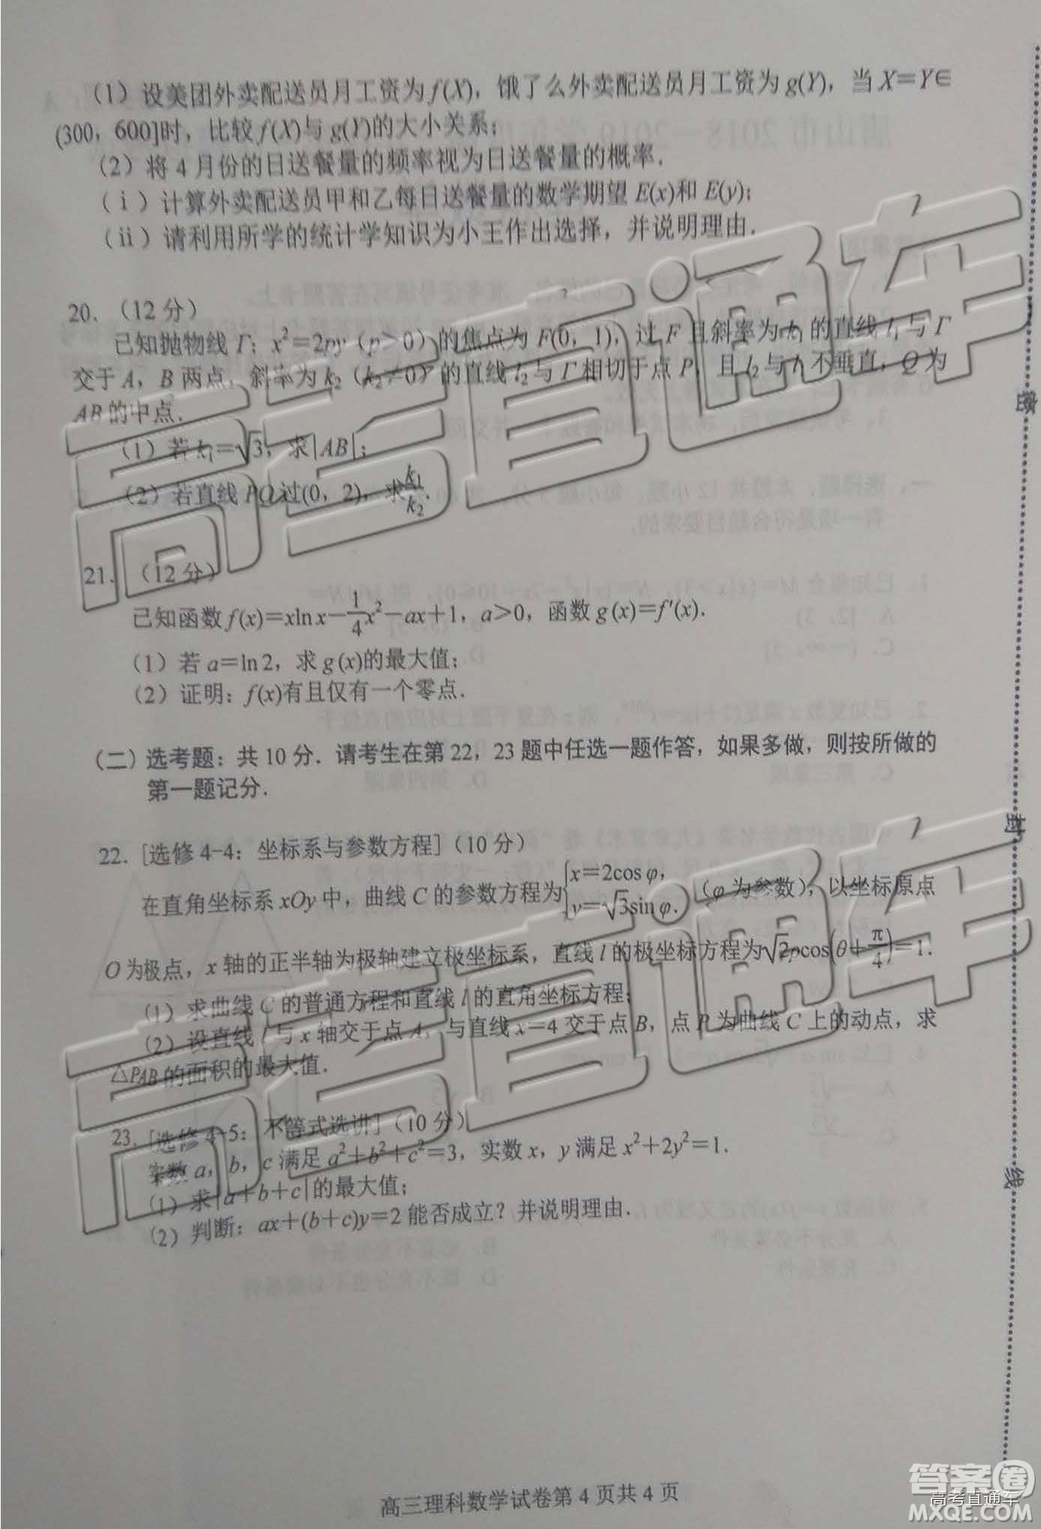 （1）设美团外卖配送员月工资为 f(X)，饿了么外卖配送员月工资为 g(Y)，当 X＝Y∈
(300，600]时，比较 f(X)与 g(Y)的大小关系；
（2）将 4 月份的日送餐量的频率视为日送餐量的概率．
（ⅰ）计算外卖配送员甲和乙每日送餐量的数学期望 E(x)和 E(y)；
（ⅱ）请利用所学的统计学知识为小王作出选择，并说明理由．
20．（12 分）
已知抛物线 Γ：x²＝2py（p＞0）的焦点为 F(0，1)，过 F 且斜率为 k₁ 的直线 l₁ 与 Γ
交于 A，B 两点，斜率为 k₂（k₂≠0）的直线 l₂ 与 Γ 相切于点 P，且 l₂ 与 l₁ 不垂直，Q 为
AB 的中点．
（1）若 k₁＝√3，求|AB|；
（2）若直线 PQ 过(0，2)，求k₁/k₂．
21．（12 分）
已知函数 f(x)＝xln x－1/4x²－ax＋1，a＞0，函数 g(x)＝f′(x)．
（1）若 a＝ln 2，求 g(x)的最大值；
（2）证明：f(x)有且仅有一个零点．
（二）选考题：共 10 分．请考生在第 22，23 题中任选一题作答，如果多做，则按所做的
第一题记分．
22．[选修 4–4：坐标系与参数方程]（10 分）
在直角坐标系 xOy 中，曲线 C 的参数方程为{x＝2cos φ，y＝√3sin φ．（φ 为参数），以坐标原点
O 为极点，x 轴的正半轴为极轴建立极坐标系，直线 l 的极坐标方程为√2ρcos(θ＋π/4)＝1．
（1）求曲线 C 的普通方程和直线 l 的直角坐标方程；
（2）设直线 l 与 x 轴交于点 A，与直线 x＝4 交于点 B，点 P 为曲线 C 上的动点，求
△PAB 的面积的最大值．
23．[选修 4–5：不等式选讲]（10 分）
实数 a，b，c 满足 a²＋b²＋c²＝3，实数 x，y 满足 x²＋2y²＝1．
（1）求|a＋b＋c|的最大值；
（2）判断：ax＋(b＋c)y＝2 能否成立？并说明理由．
高三理科数学试卷第 4 页共 4 页
密
封
线
高考直通车
高考直通车
答案圈
高考直通车
MXQE.COM